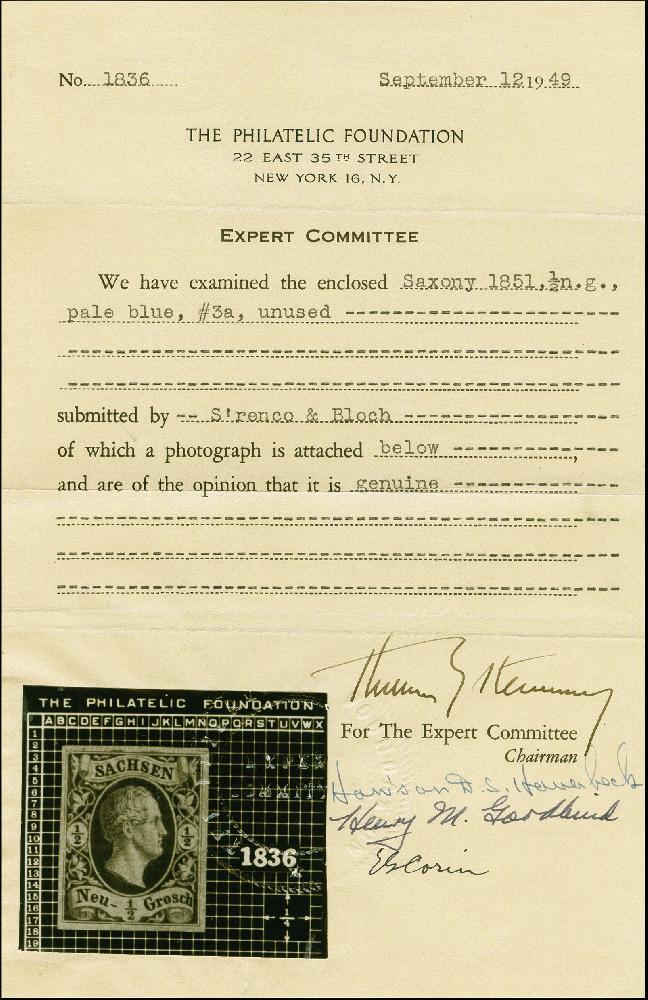 No. 1836 September 12 1949
THE PHILATELIC FOUNDATION
22 EAST 35TH STREET
NEW YORK 16, N.Y.
EXPERT COMMITTEE
We have examined the enclosed Saxony 1851, ½n.g.,
pale blue, #3a, unused
submitted by -- S'renco & Bloch
of which a photograph is attached below ,
and are of the opinion that it is genuine
For The Expert Committee
Chairman
Henry M. Goodkind
THE PHILATELIC FOUNDATION
ABCDEFGHIJKLMNOPQRSTUVWX
1
2
3
4
5
6
7
8
9
10
11
12
13
14
15
16
17
18
19
SACHSEN
½ ½
Neu- ½ Grosch
1836
¼